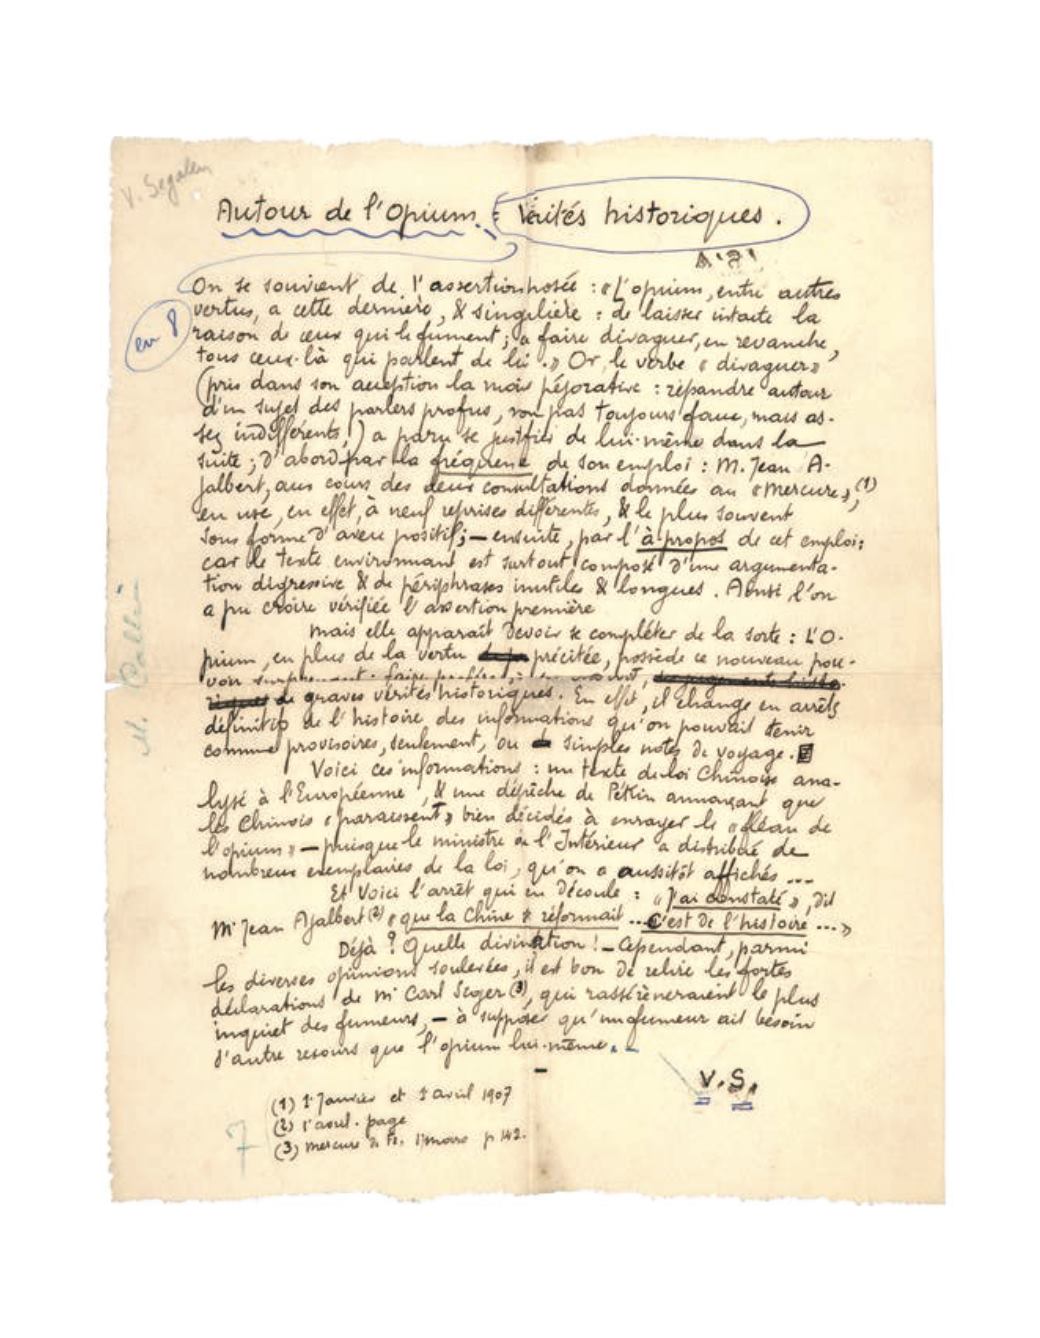 V. Segalen
Autour de l'Opium : Vérités historiques.
On se souvient de l'assertion posée : « L'opium, entre autres
en 8
vertus, a cette dernière, & singulière : de laisser intacte la
raison de ceux qui le fument ; à faire divaguer, en revanche,
tous ceux-là qui parlent de lui. » Or, le verbe « divaguer »
(pris dans son acception la moins péjorative : répandre autour
d'un sujet des parlers profus, non pas toujours faux, mais as-
sez indifférents,) a paru se justifier de lui-même dans la
suite ; d'abord par la fréquence de son emploi : M. Jean A-
jalbert, aux cours des deux consultations données au « Mercure », (1)
en use, en effet, à neuf reprises différentes, & le plus souvent
sous forme d'aveu positif ; — ensuite, par l'à propos de cet emploi ;
car le texte environnant est surtout composé d'une argumenta-
tion digressive & de périphrases inutiles & longues. Ainsi l'on
a pu croire vérifiée l'assertion première
Mais elle apparaît devoir se compléter de la sorte : L'O-
pium, en plus de la vertu précitée, possède ce nouveau pou-
voir surprenant : faire
de graves vérités historiques. En effet, il change en arrêts
définitifs de l'histoire des informations qu'on pouvait tenir
comme provisoires, seulement, ou simples notes de voyage.
Voici ces informations : un texte de loi Chinoise ana-
lysé à l'Européenne, & une dépêche de Pékin annonçant que
les Chinois « paraissent » bien décidés à enrayer le « fléau de
l'opium » — puisque le ministre de l'Intérieur a distribué de
nombreux exemplaires de la loi, qu'on a aussitôt affichés ...
Et voici l'arrêt qui en découle : « J'ai constaté », dit
Mr Jean Ajalbert (2) « que la Chine se réformait ... C'est de l'histoire ... »
Déjà ? Quelle divination ! — Cependant, parmi
les diverses opinions soulevées, il est bon de relire les fortes
déclarations de Mr Carl Seger (3), qui rassérèneraient le plus
inquiet des fumeurs, — à supposer qu'un fumeur ait besoin
d'autre secours que l'opium lui-même.
V. S.
(1) 1r Janvier et 1r avril 1907
(2) 1r avril. page
(3) Mercure de Fr. 1r mars p 142.
7